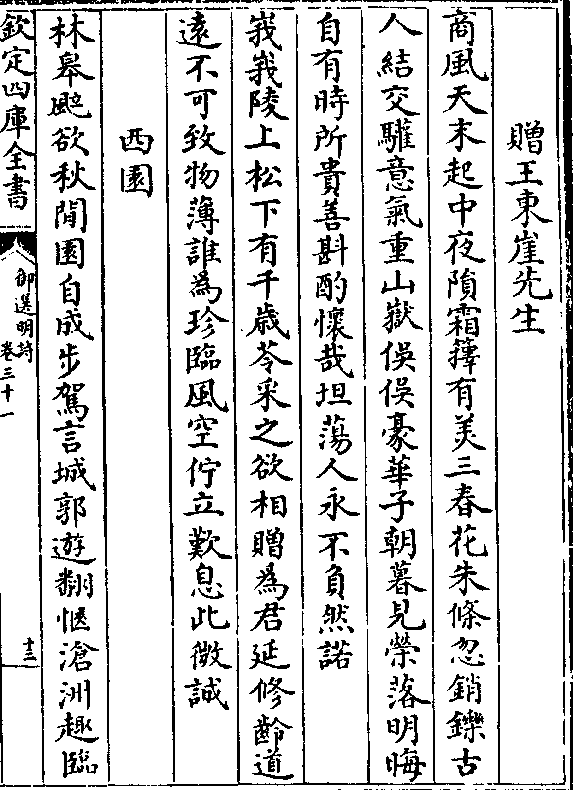 贈王東崖先生
商風天末起中夜隕霜籜有美三春花朱條忽銷鑠古
人結交驩意氣重山嶽俁俁豪華子朝暮見榮落明晦
自有時所貴善斟酌懷哉坦蕩人永不負然諾
峩峩陵上松下有千歲苓采之欲相贈為君延修齡道
遠不可致物薄誰為珍臨風空佇立歎息此微誠
西園
林皋颸欲秋閒園自成步駕言城郭遊翻愜滄洲趣臨
欽定四庫全書
御選明詩
卷三十一
十三